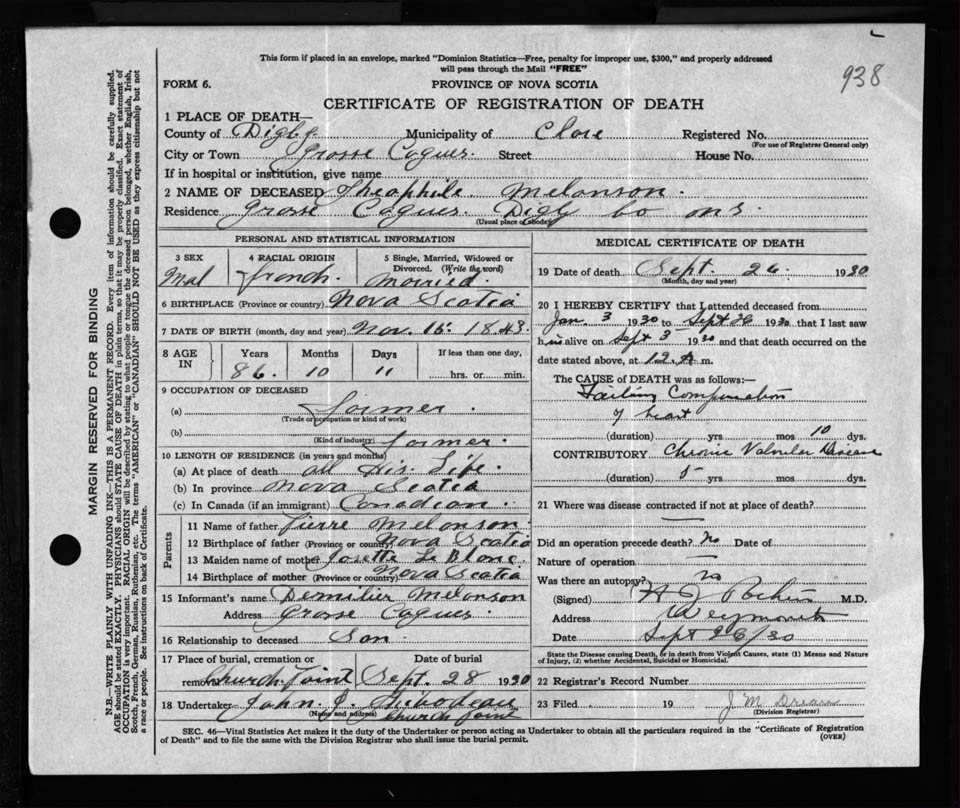 938
This form if placed in an envelope, marked "Dominion Statistics—Free, penalty for improper use, $300," and properly addressed
will pass through the Mail "FREE"
FORM 6.
PROVINCE OF NOVA SCOTIA
CERTIFICATE OF REGISTRATION OF DEATH
1 PLACE OF DEATH—
County of Digby Municipality of Clare Registered No.
(For use of Registrar General only)
City or Town Grosse Coques. Street House No.
If in hospital or institution, give name
2 NAME OF DECEASED Theophile Melanson.
Residence Grosse Coques. Digby Co N S.
(Usual place of abode)
PERSONAL AND STATISTICAL INFORMATION
3 SEX
Mal
4 RACIAL ORIGIN
french.
5 Single, Married, Widowed or
Divorced. (Write the word)
Married.
6 BIRTHPLACE (Province or country) Nova Scotia
7 DATE OF BIRTH (month, day and year) Nov. 15. 1843
8 AGE IN
Years Months Days If less than one day,
86. 10 11 hrs. or min.
9 OCCUPATION OF DECEASED
(a) farmer.
(Trade or occupation or kind of work)
(b) farmer.
(Kind of industry)
10 LENGTH OF RESIDENCE (in years and months)
(a) At place of death all His Life.
(b) In province Nova Scotia
(c) In Canada (if an immigrant) Canadian.
Parents
11 Name of father Pierre Melanson.
12 Birthplace of father (Province or country) Nova Scotia
13 Maiden name of mother Josette Le Blanc.
14 Birthplace of mother (Province or country) Nova Scotia
15 Informant's name Melanson
Address Grosse Coques.
16 Relationship to deceased Son.
17 Place of burial, cremation or Date of burial
removal Church Point Sept. 28 1930
18 Undertaker John. J. Thibodeau
(Name and address) Church Point
MEDICAL CERTIFICATE OF DEATH
19 Date of death Sept. 26. 1930
(Month, day and year)
20 I HEREBY CERTIFY that I attended deceased from
Jan. 3 1930 to Sept 26 1930 that I last saw
him alive on Sept 3 1930 and that death occurred on the
date stated above, at 12 A m.
The CAUSE OF DEATH was as follows:—
Failing Compensation
of heart
(duration) yrs mos 10 dys.
CONTRIBUTORY Chronic Valvular Disease
(duration) 5 yrs mos dys.
21 Where was disease contracted if not at place of death?
—
Did an operation precede death? No Date of
Nature of operation —
Was there an autopsy? No
(Signed) M.D.
Address Weymouth
Date Sept 26/30
State the Disease causing Death, or in death from Violent Causes, state (1) Means and Nature
of Injury, (2) whether Accidental, Suicidal or Homicidal.
22 Registrar's Record Number
23 Filed 19 J M
(Division Registrar)
SEC. 46—Vital Statistics Act makes it the duty of the Undertaker or person acting as Undertaker to obtain all the particulars required in the "Certificate of Registration
of Death" and to file the same with the Division Registrar who shall issue the burial permit. (OVER)
MARGIN RESERVED FOR BINDING
N.B.—WRITE PLAINLY WITH UNFADING INK—THIS IS A PERMANENT RECORD. Every item of information should be carefully supplied.
AGE should be stated EXACTLY. PHYSICIANS should STATE CAUSE OF DEATH in plain terms, so that it may be properly classified. Exact statement of
OCCUPATION is very important. RACIAL ORIGIN will be described by stating to what people or tongue the deceased person belonged, whether English, Irish,
Scotch, French, German, Russian, Ruthenian, etc. The terms "AMERICAN" or "CANADIAN" SHOULD NOT BE USED as they express citizenship but not
a race or people. See instructions on back of Certificate.